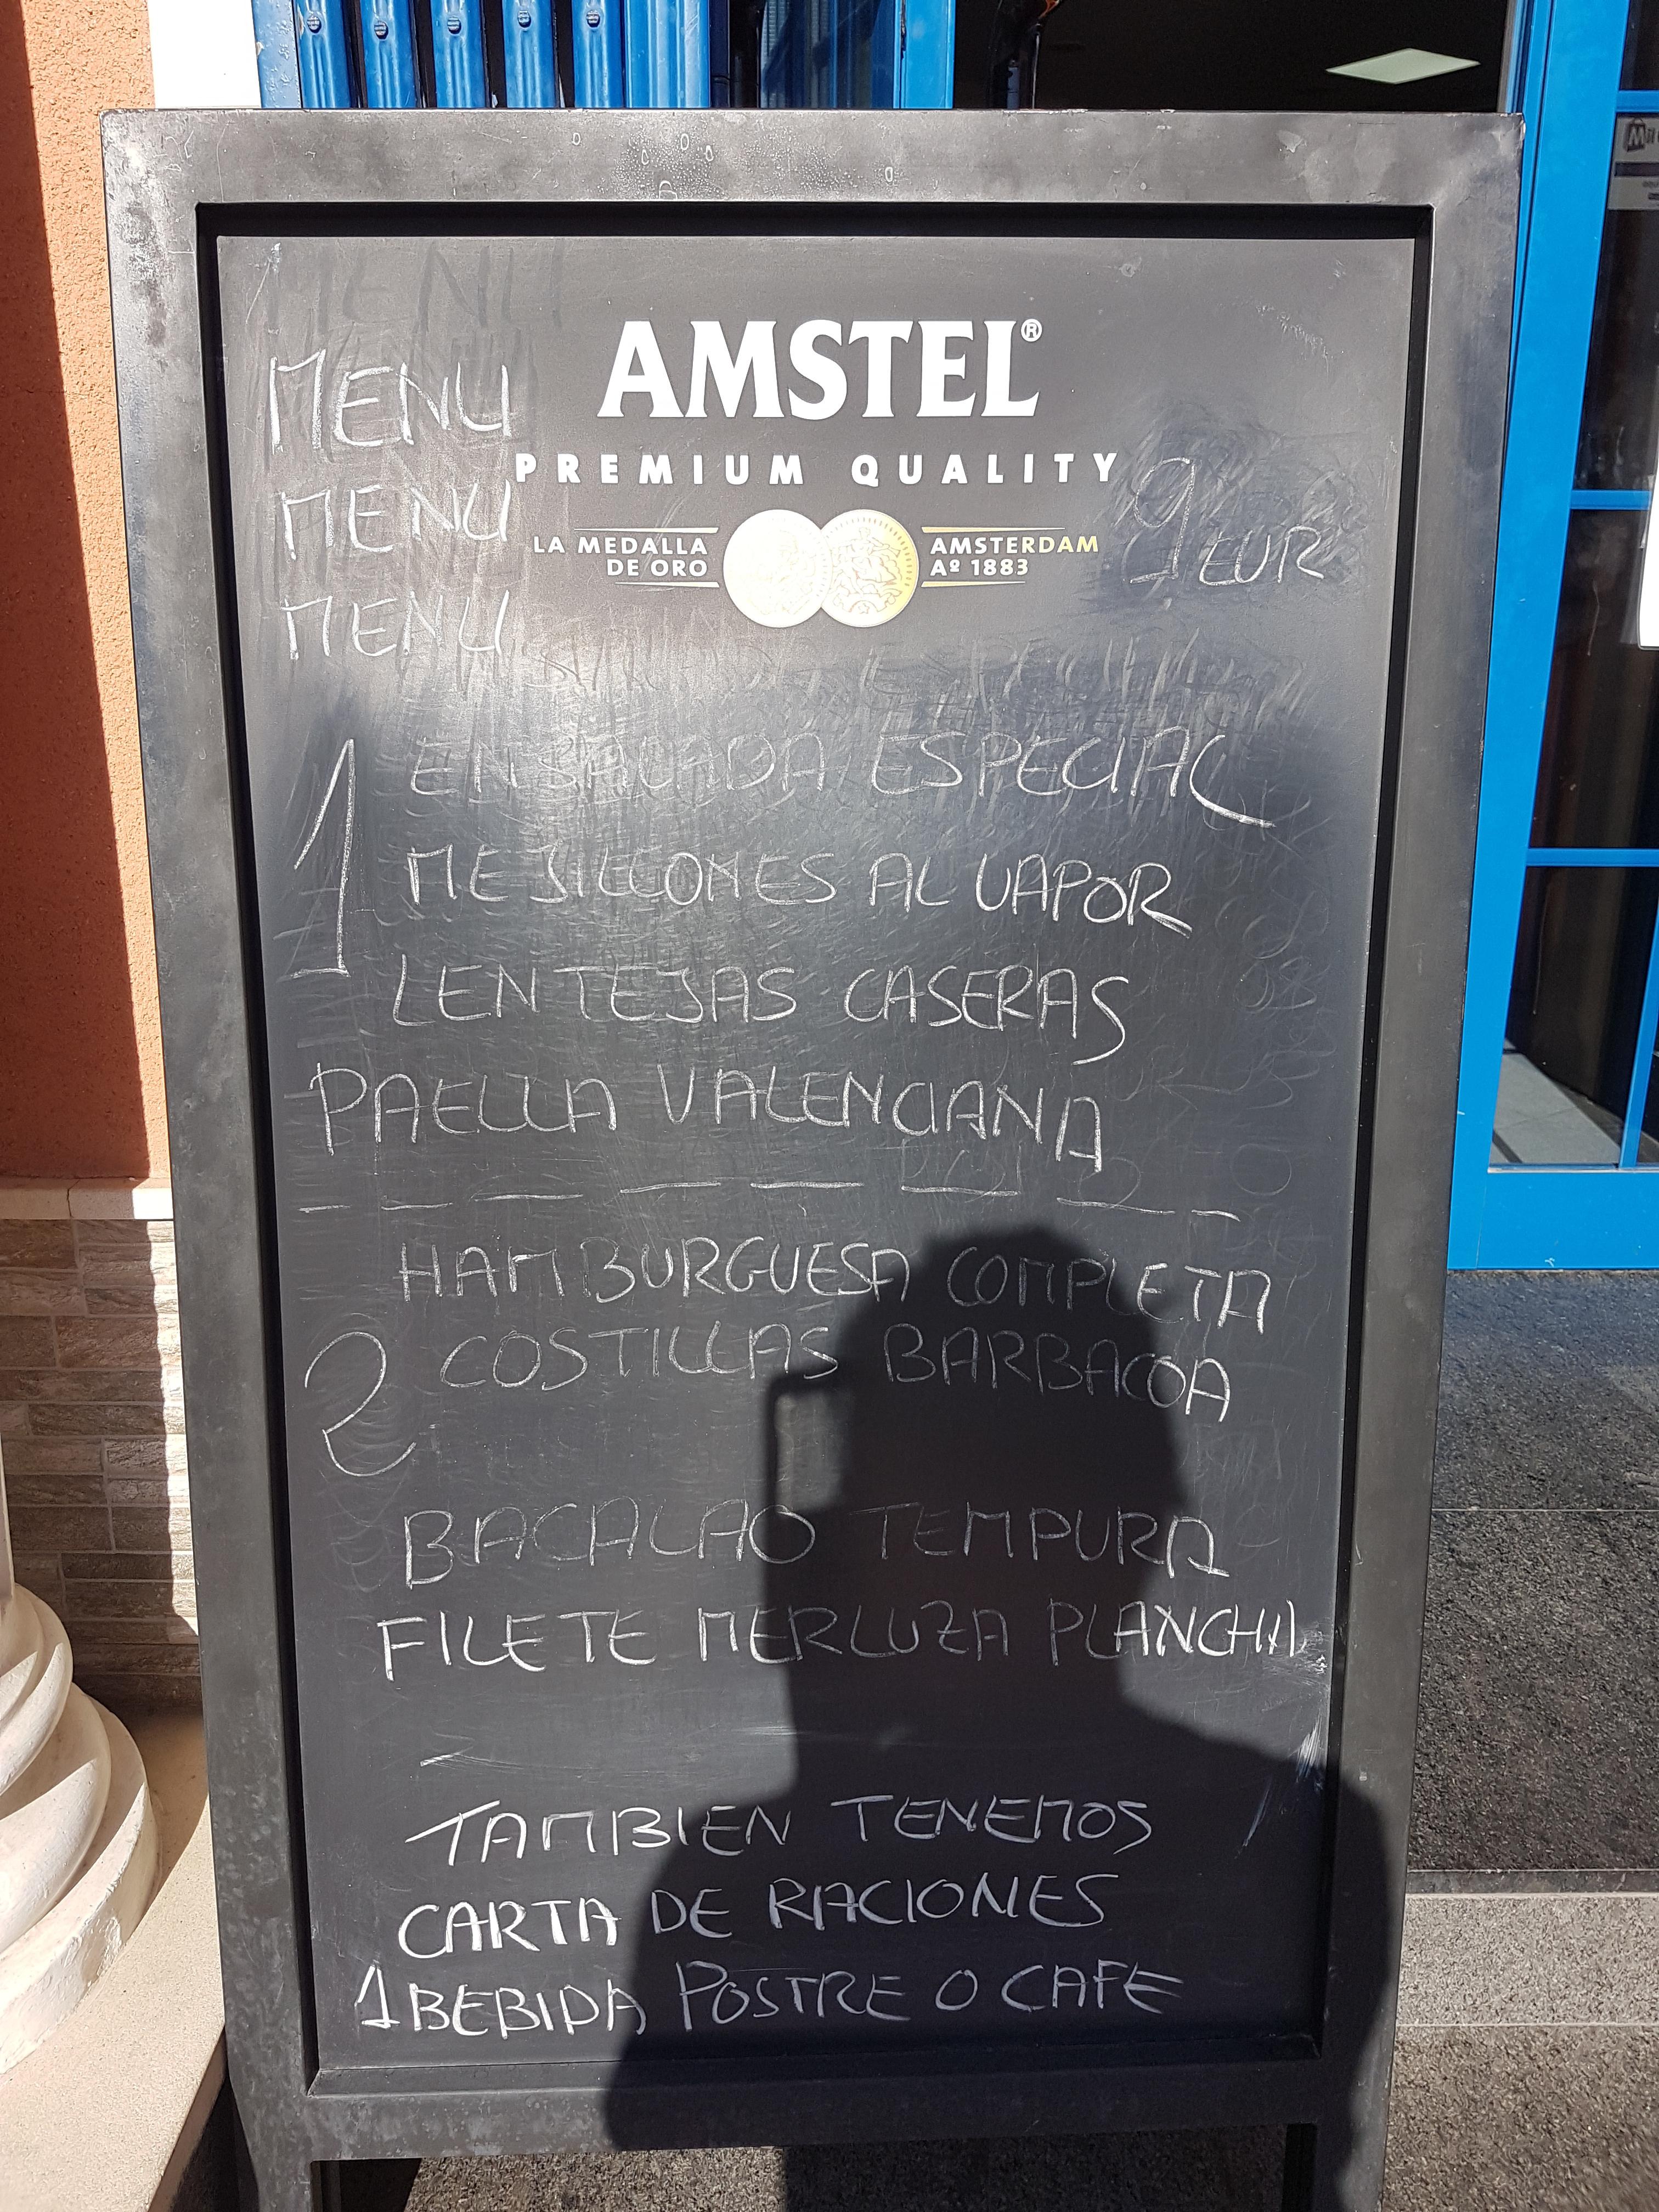 AMSTEL®
MENU
PREMIUM QUALITY
MENU
9 EUR
LA MEDALLA DE ORO
AMSTERDAM Aº 1883
MENU
1
ENSALADA ESPECIAL
MEJILLONES AL VAPOR
LENTEJAS CASERAS
PAELLA VALENCIANA
HAMBURGUESA COMPLETA
2
COSTILLAS BARBACOA
BACALAO TEMPURA
FILETE MERLUZA PLANCHA
TAMBIEN TENEMOS
CARTA DE RACIONES
1 BEBIDA POSTRE O CAFE